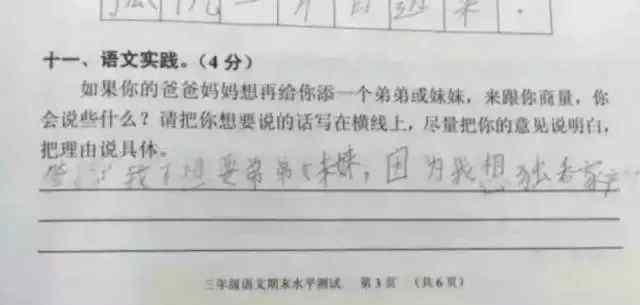 一
来 .
十一、语文实践。(4分)
如果你的爸爸妈妈想再给你添一个弟弟或妹妹，来跟你商量，你
会说些什么？请把你想要说的话写在横线上，尽量把你的意见说明白，
把理由说具体。
我不想要弟弟妹，因为我想独吞家产
三年级语文期末水平测试 第3页 (共6页)